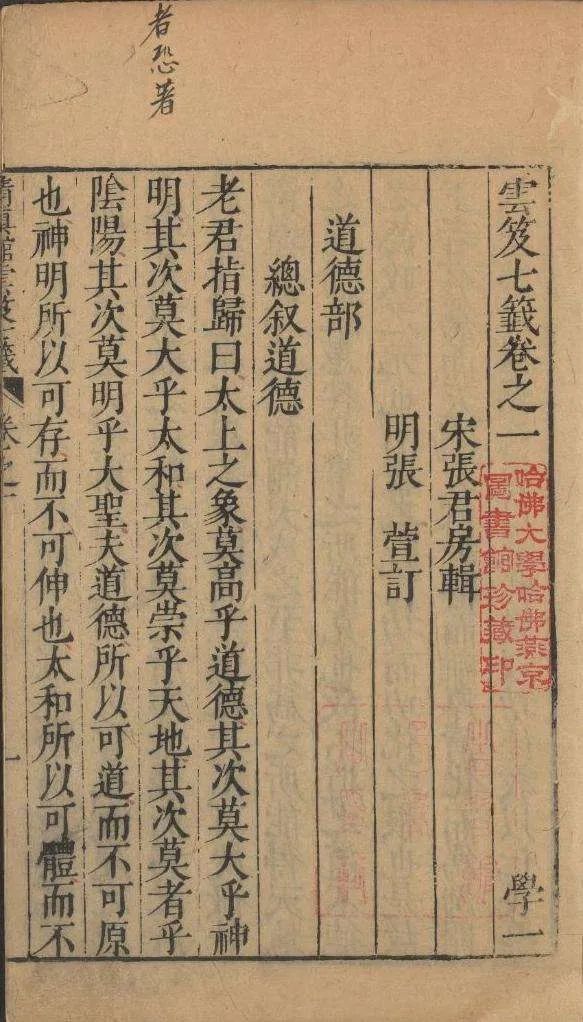 者恐著
雲笈七籤卷之一
學一
哈佛大學哈佛燕京
圖書館珍藏印
宋張君房輯
明張 萱訂
道德部
總叙道德
老君指歸曰太上之象莫高乎道德其次莫大乎神
明其次莫大乎太和其次莫崇乎天地其次莫者乎
陰陽其次莫明乎大聖夫道德所以可道而不可原
也神明所以可存而不可伸也太和所以可體而不
卷之一
一